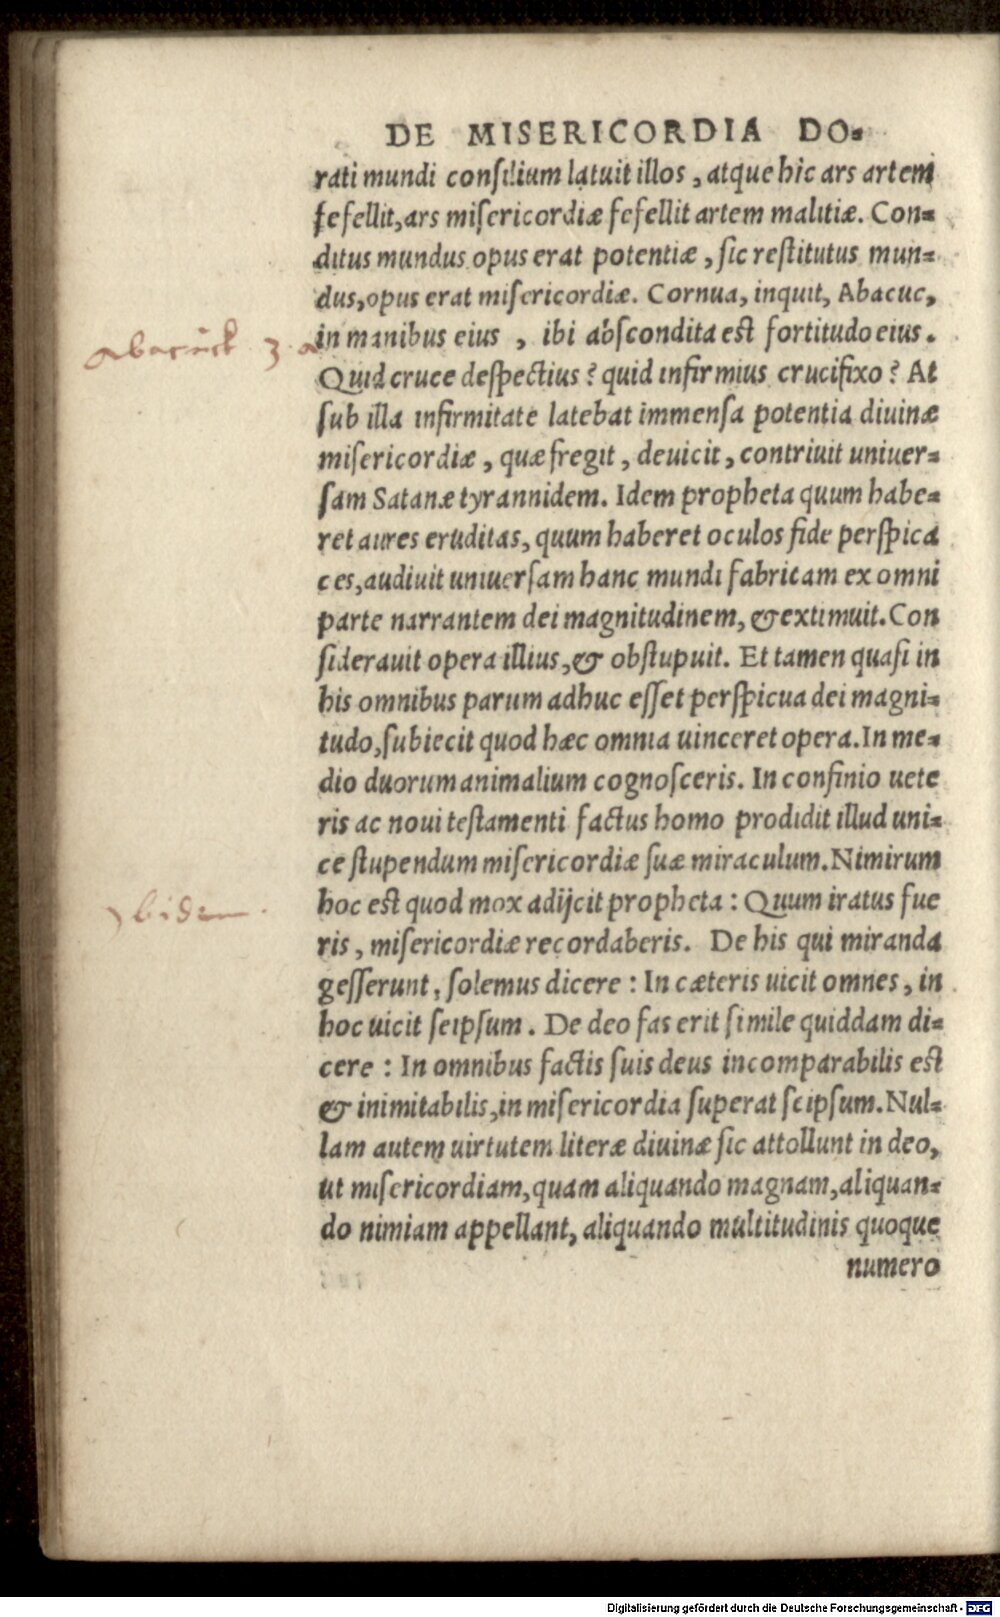 DE MISERICORDIA DO-
rati mundi consilium latuit illos, atque hic ars artem
fefellit, ars misericordiæ fefellit artem malitiæ. Con-
ditus mundus opus erat potentiæ, sic restitutus mun-
dus, opus erat misericordiæ. Cornua, inquit, Abacuc,
in manibus eius, ibi abscondita est fortitudo eius.
abacuck 3. a
Quid cruce despectius? quid infirmius crucifixo? At
sub illa infirmitate latebat immensa potentia diuinæ
misericordiæ, quæ fregit, deuicit, contriuit uniuer-
sam Satanæ tyrannidem. Idem propheta quum habe-
ret aures eruditas, quum haberet oculos fide perspica
ces, audiuit uniuersam hanc mundi fabricam ex omni
parte narrantem dei magnitudinem, & extimuit. Con
siderauit opera illius, & obstupuit. Et tamen quasi in
his omnibus parum adhuc esset perspicua dei magni-
tudo, subiecit quod hæc omnia uinceret opera. In me-
dio duorum animalium cognosceris. In confinio uete
ris ac noui testamenti factus homo prodidit illud uni-
ce stupendum misericordiæ suæ miraculum. Nimirum
hoc est quod mox adijcit propheta: Quum iratus fue
Ibidem.
ris, misericordiæ recordaberis. De his qui miranda
gesserunt, solemus dicere: In cæteris uicit omnes, in
hoc uicit seipsum. De deo fas erit simile quiddam di-
cere: In omnibus factis suis deus incomparabilis est
& inimitabilis, in misericordia superat seipsum. Nul-
lam autem uirtutem literæ diuinæ sic attollunt in deo,
ut misericordiam, quam aliquando magnam, aliquan-
do nimiam appellant, aliquando multitudinis quoque
numero
Digitalisierung gefördert durch die Deutsche Forschungsgemeinschaft - DFG